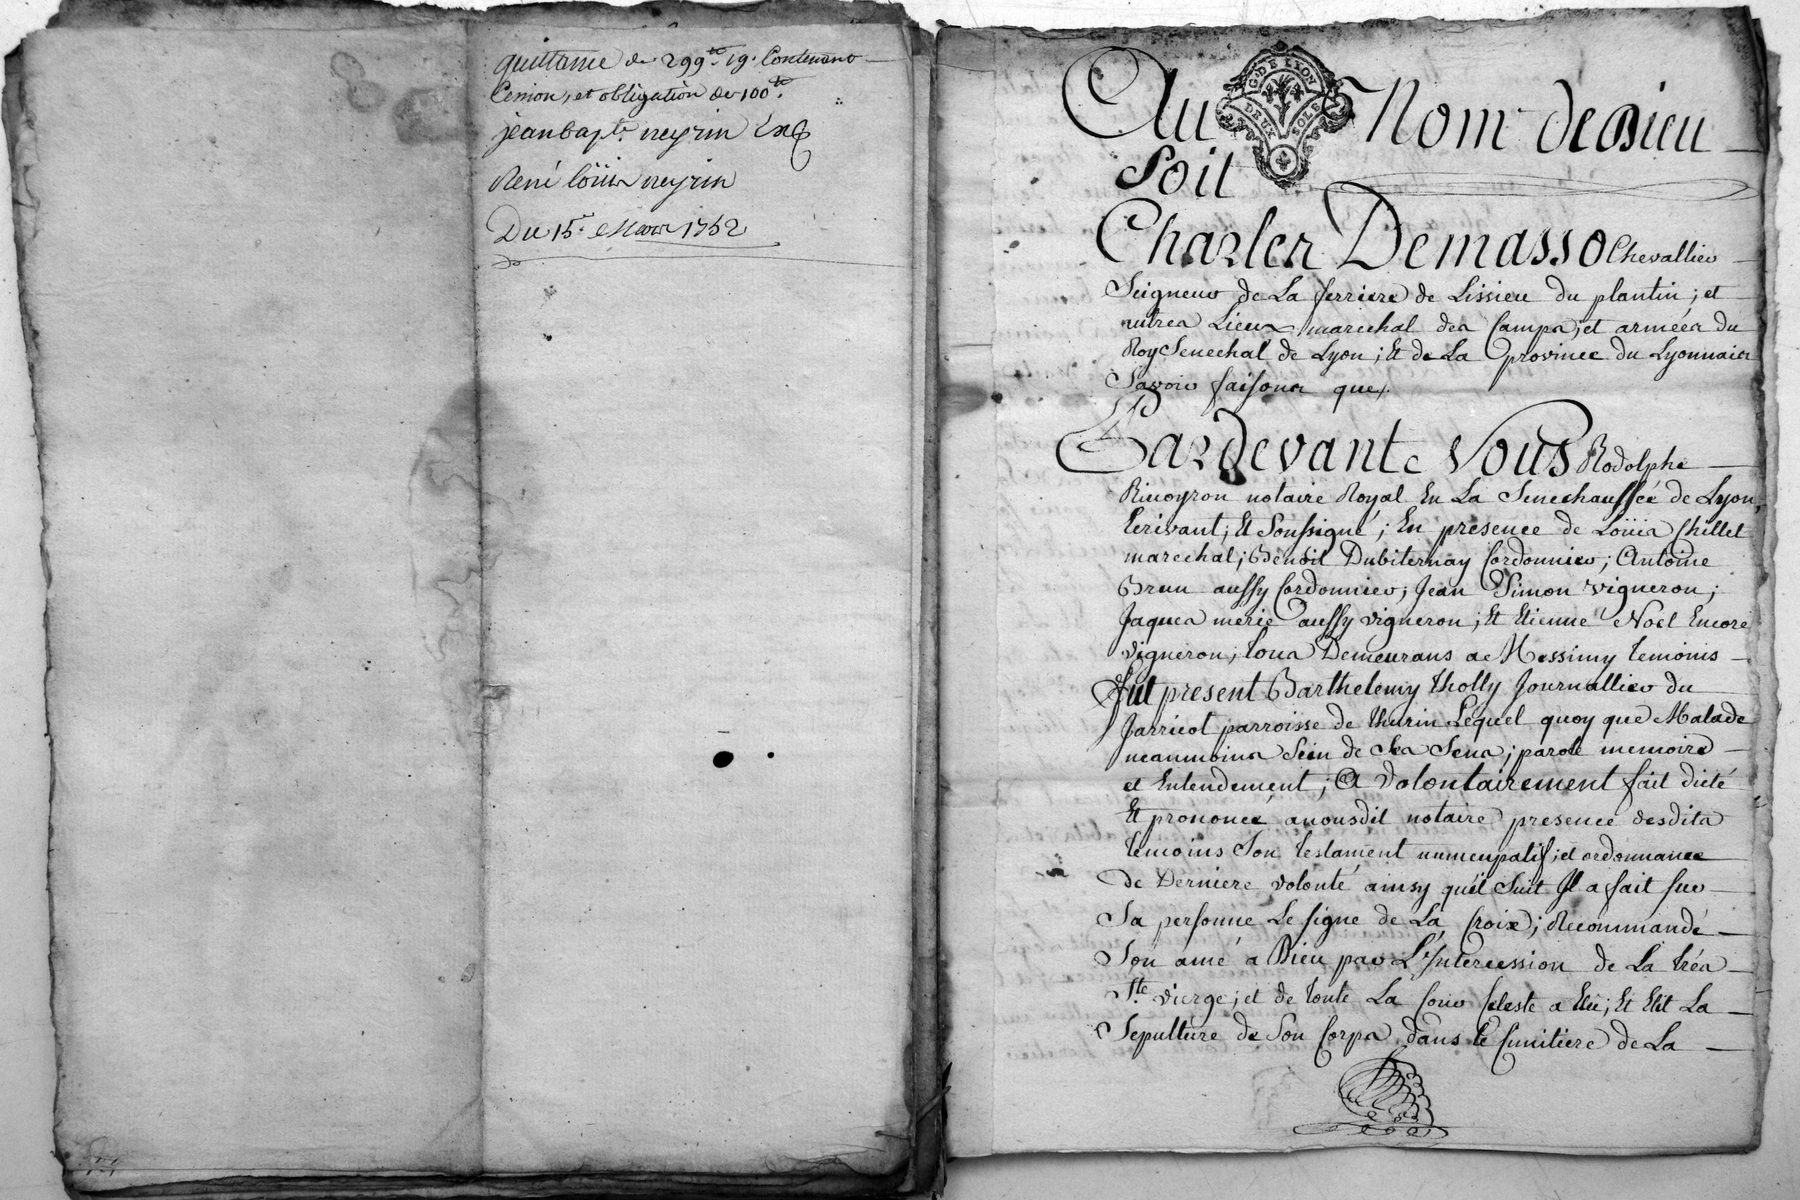 quittance de 299 lt. 19s. Contenant
Cession, et obligation de 100 lt.
jean bapte. neyrin
René loüis neyrin
Du 15e. Mars 1752
G. DE LYON
DEUX SOLS
Au Nom de Dieu
Soit
Charles Demasso Chevallier
Seigneur de La ferriere de Lissieu du plantin; et
autres Lieux marechal des Camps, et armées du
Roy Senechal de Lyon; Et de La province du Lyonnais
Savoir faisons que,
Pardevant Nous Rodolphe
notaire Royal En La Senechaussée de Lyon,
Ecrivant; Et Soussigné; En presence de Loüis Chillet
marechal; Benoit Dubiternay Cordonnier; Antoine
Brun aussy Cordonnier; Jean Simon vigneron;
Jaques merie aussy vigneron; Et Etienne Noel Encore
vigneron; tous Demeurans a Messimy temoins
fut present Barthelemy tholly Journallier du
Jarricot parroisse de thurin Lequel quoy que Malade
neanmoins Sein de Ses Sens; parole memoire
et Entendement; A volontairement fait dicté
Et prononcé anousdit notaire presence desdits
temoins Son testament nuncupatif; et ordonnance
de Derniere volonté ainsy qu'il Suit Il a fait sur
Sa personne Le signe de La Croix; Recommandé
Son ame a Dieu par L'Intercession de La trés
Ste. vierge; et de toute La Cour Celeste a Elû; Et Elit La
Sepulture de Son Corps dans le Cimitiere de La